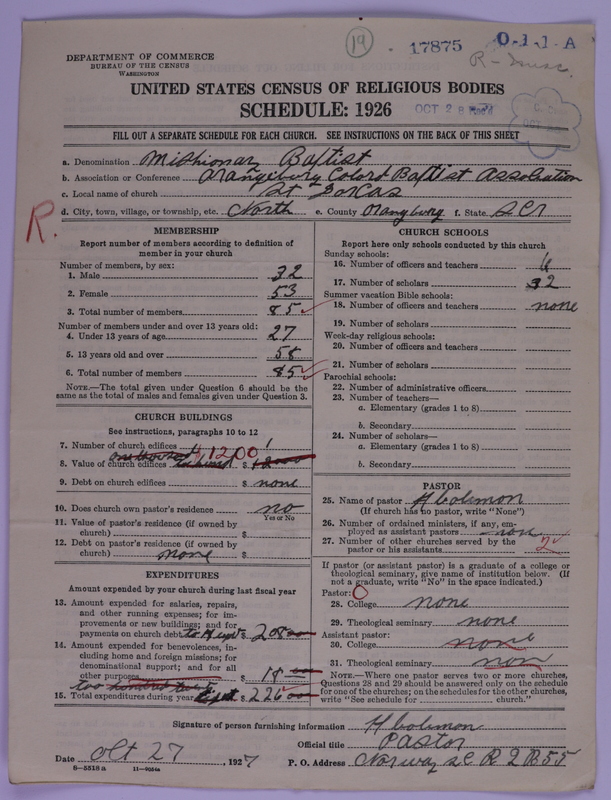 19 17875 0-1-1-A
R-
DEPARTMENT OF COMMERCE
BUREAU OF THE CENSUS
WASHINGTON
UNITED STATES CENSUS OF RELIGIOUS BODIES
SCHEDULE: 1926
OCT 28
FILL OUT A SEPARATE SCHEDULE FOR EACH CHURCH. SEE INSTRUCTIONS ON THE BACK OF THIS SHEET
a. Denomination Missionary Baptist
b. Association or Conference Orangeburg Colord Baptist Association
c. Local name of church St Dorcas
d. City, town, village, or township, etc. North e. County Orangburg f. State S C
R.
MEMBERSHIP
Report number of members according to definition of
member in your church
Number of members, by sex:
1. Male 32
2. Female 53
3. Total number of members 85
Number of members under and over 13 years old:
4. Under 13 years of age 27
5. 13 years old and over 58
6. Total number of members 85
NOTE.—The total given under Question 6 should be
the same as the total of males and females given under Question 3.
CHURCH BUILDINGS
See instructions, paragraphs 10 to 12
7. Number of church edifices 1
1200
8. Value of church edifices $
9. Debt on church edifices $ none
10. Does church own pastor's residence no
Yes or No
11. Value of pastor's residence (if owned by
church) $
12. Debt on pastor's residence (if owned by
church) none $
EXPENDITURES
Amount expended by your church during last fiscal year
13. Amount expended for salaries, repairs,
and other running expenses; for im-
provements or new buildings; and for
payments on church debt $ 208
14. Amount expended for benevolences, in-
cluding home and foreign missions; for
denominational support; and for all
other purposes $ 18
15. Total expenditures during year $ 226
CHURCH SCHOOLS
Report here only schools conducted by this church
Sunday schools:
16. Number of officers and teachers 6
17. Number of scholars 32
Summer vacation Bible schools:
18. Number of officers and teachers none
19. Number of scholars
Week-day religious schools:
20. Number of officers and teachers
21. Number of scholars
Parochial schools:
22. Number of administrative officers
23. Number of teachers—
a. Elementary (grades 1 to 8)
b. Secondary
24. Number of scholars—
a. Elementary (grades 1 to 8)
b. Secondary
PASTOR
25. Name of pastor H Colemon
(If church has no pastor, write "None")
26. Number of ordained ministers, if any, em-
ployed as assistant pastors non
27. Number of other churches served by the
pastor or his assistants 2
If pastor (or assistant pastor) is a graduate of a college or
theological seminary, give name of institution below. (If
not a graduate, write "No" in the space indicated.)
Pastor: O
28. College none
29. Theological seminary none
Assistant pastor:
30. College none
31. Theological seminary non
NOTE.—Where one pastor serves two or more churches,
Questions 28 and 29 should be answered only on the schedule
for one of the churches; on the schedules for the other churches,
write "See schedule for church."
Signature of person furnishing information H Colemon
Official title Pastor
Date Oct 27, 1927 P. O. Address Norway S C R 2 B 55
8-5518 a 11-9054a